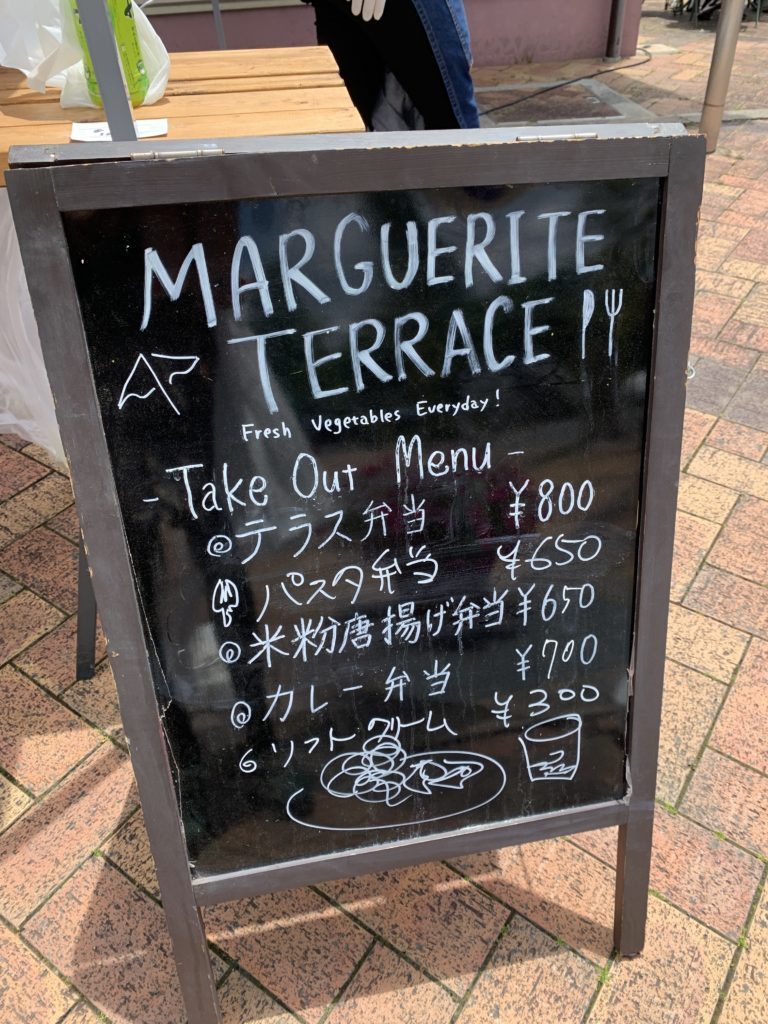 MARGUERITE
TERRACE
Fresh Vegetables Everyday!
- Take Out Menu -
◎テラス弁当 ¥800
パスタ弁当 ¥650
◎米粉唐揚げ弁当 ¥650
◎カレー弁当 ¥700
ソフトクリーム ¥300